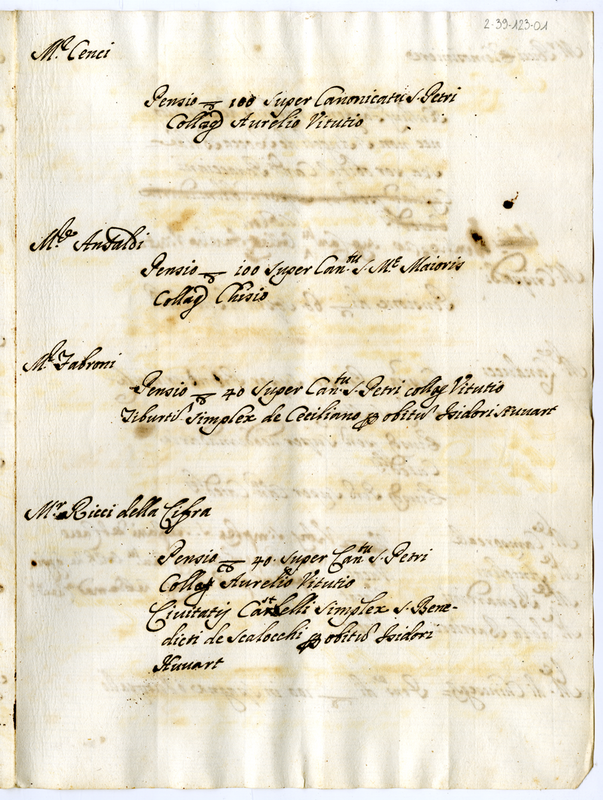 2-39-123-01
Mr. Cenci
Pensio 100 super Canonicatu S. Petri
Collag Aurelio Vitutio
Mr. Ansaldi
Pensio 100 super Can.tu S. Me Maioris
Collag Chisio
Mr. Fabroni
Pensio 40 super Can.tu S. Petri collag Vitutio
Tiburtis simplex de Ceciliano obitu Isidori Nuuart
Mr. Ricci della Cifra
Pensio 40. super Can.tu S. Petri
Collag Aurelio Vitutio
Ciuitatis Castelli simplex S. Bene-
dicti de Scalocchi obitu Isidori
Nuuart